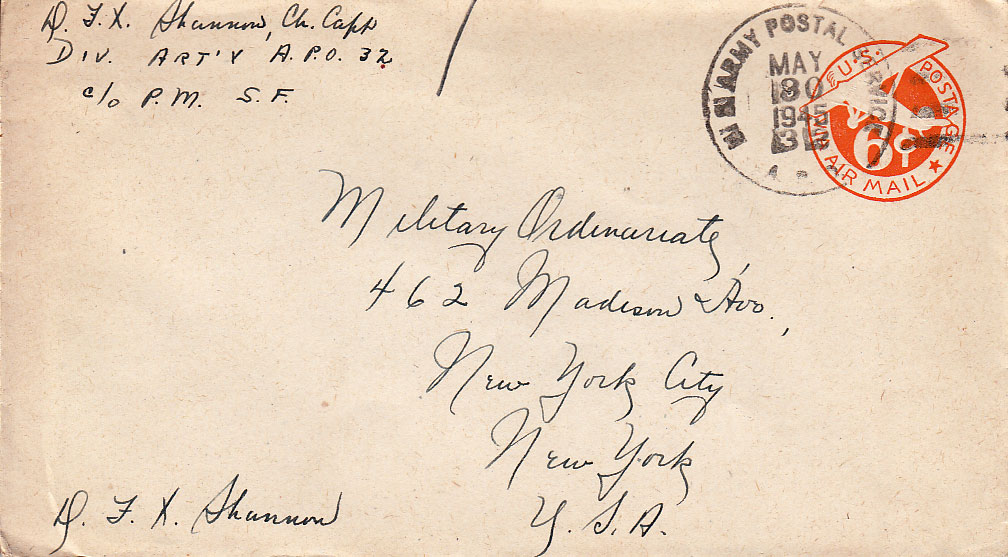 D. F. X. Shannon, Ch. Capt
DIV. ART'Y A.P.O. 32
c/o P.M. S.F.
ARMY POSTAL SERVICE
MAY
30
1945
U.S. POSTAGE
6¢
VIA AIR MAIL
Military Ordinariate,
462 Madison Ave.,
New York City
New York
U.S.A.
D. F. X. Shannon